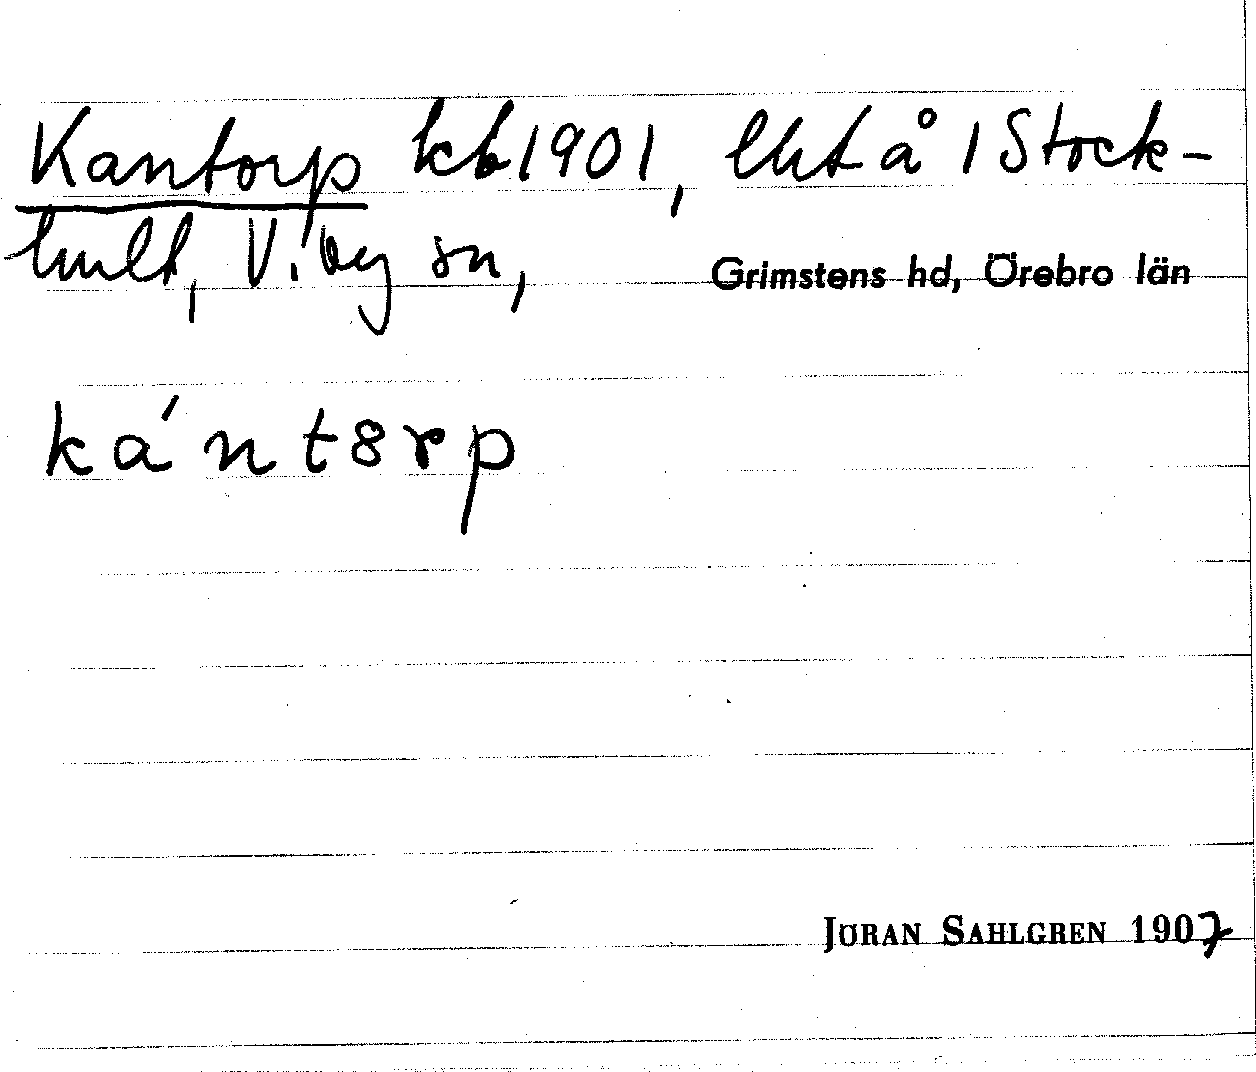 Kantorp kb 1901, lht å 1 Stock-
hult, Viby sn, Grimstens hd, Örebro län
kántȣrp
JÖRAN SAHLGREN 1907